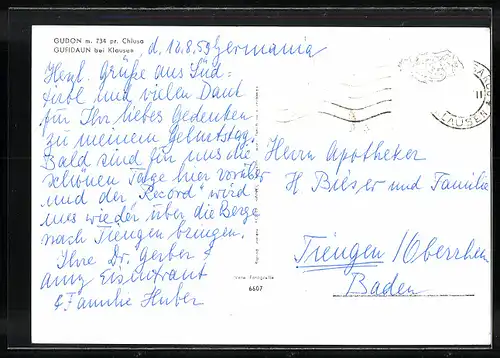 GUDON m. 734 pr. Chiusa
GUFIDAUN bei Klausen
d. 10.8.59 Germania
Herzl. Grüße aus Süd-
tirol und vielen Dank
für Ihr liebes Gedenken
zu meinem Geburtstag
Bald sind für uns die
schönen Tage hier vorüber
und der „Record" wird
uns wieder über die Berge
nach Tiengen bringen.
Ihre Dr. Gerber &
Amy Eisentraut
& Familie Huber
Herrn Apotheker
H Bieser und Familie
Tiengen/Oberrhein
Baden
Vera Fotografia
6607
LAUSEN